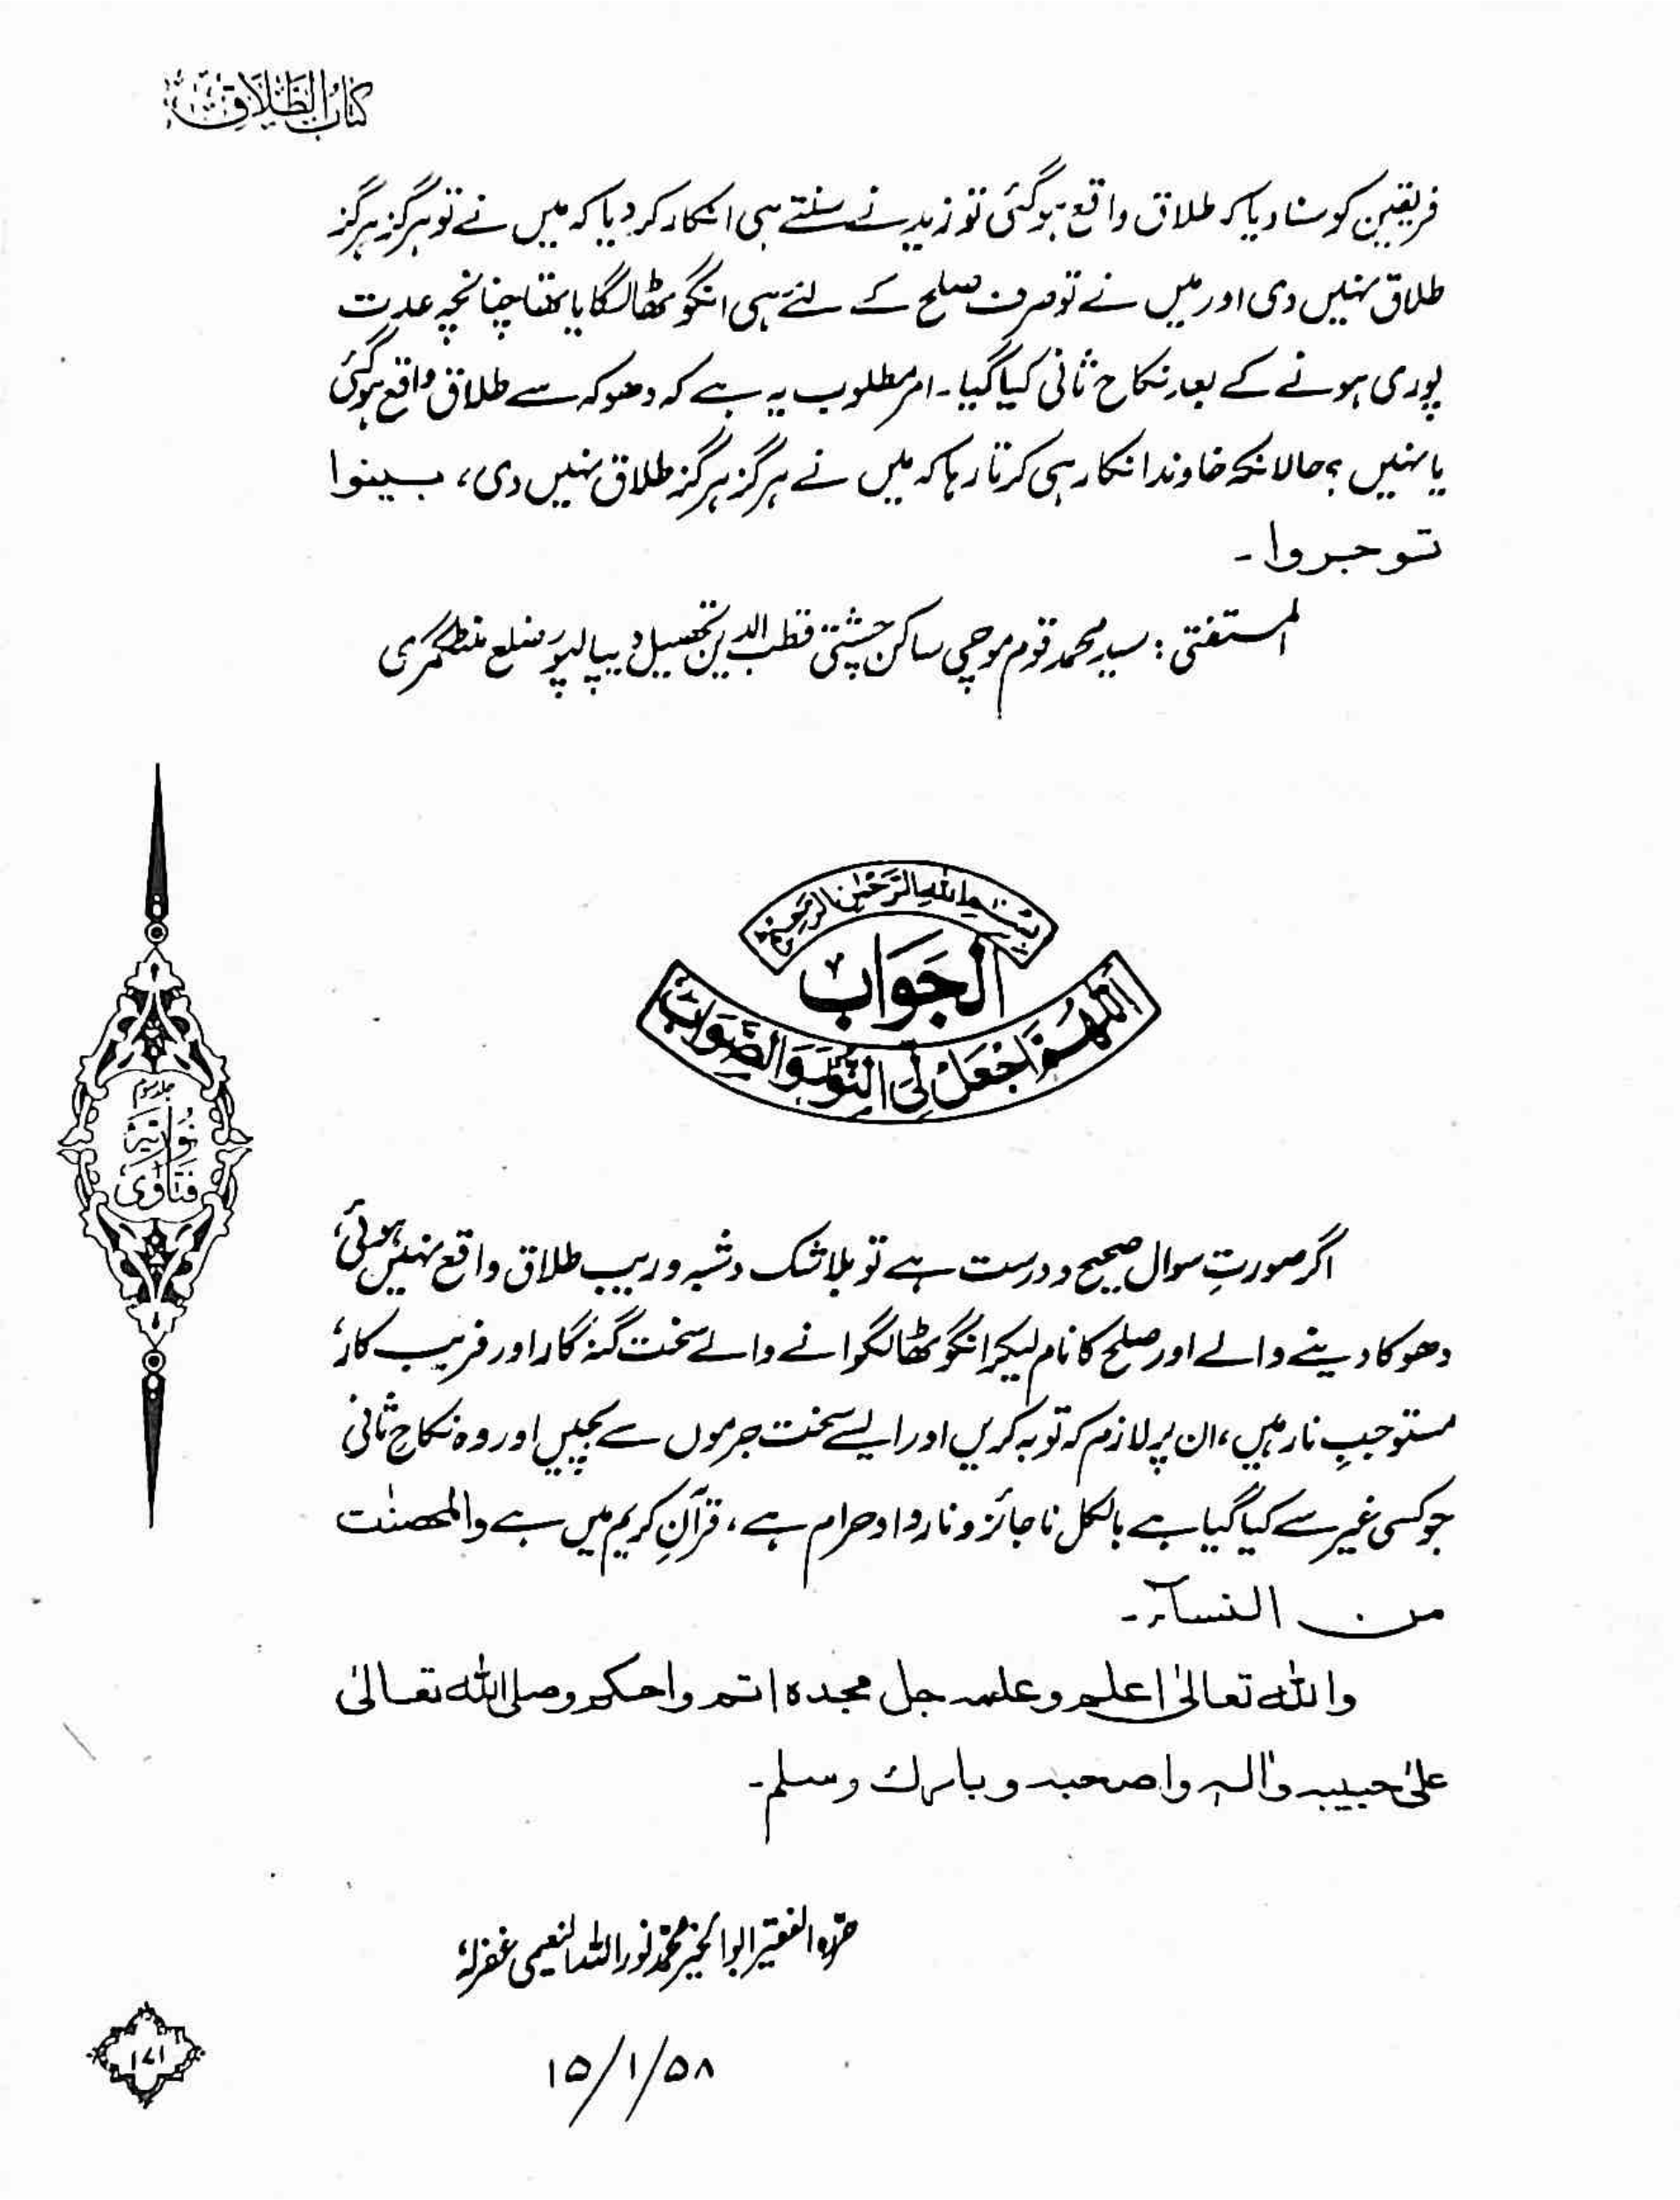 کتاب الطلاق
فریقین کو سنا دیا کہ طلاق واقع ہو گئی تو زید نے سنتے ہی انکار کر دیا کہ میں نے تو ہرگز ہرگز
طلاق نہیں دی اور میں نے تو صرف صلح کے لئے ہی انگوٹھا لگایا تھا چنانچہ عدت
پوری ہونے کے بعد نکاح ثانی کیا گیا۔ امر مطلوب یہ ہے کہ دھوکہ سے طلاق واقع ہو گئی
یا نہیں؟ حالانکہ خاوند انکار ہی کرتا رہا کہ میں نے ہرگز ہرگز طلاق نہیں دی، بینوا
توجروا۔
المستفتی: سید محمد قوم موچی ساکن چشتی قطب الدین تحصیل دیپالپور ضلع منٹگمری
بسم الله الرحمن الرحيم
الجواب
اللهم اجعل لی النور والصواب
اگر صورتِ سوال صحیح و درست ہے تو بلا شک و شبہ و ریب طلاق واقع نہیں ہوئی،
دھوکا دینے والے اور صلح کا نام لیکر انگوٹھا لگوانے والے سخت گنہگار اور فریب کار،
مستوجبِ نار ہیں، ان پر لازم کہ توبہ کریں اور ایسے سخت جرموں سے بچیں اور وہ نکاحِ ثانی
جو کسی غیر سے کیا گیا ہے بالکل ناجائز و ناروا و حرام ہے، قرآنِ کریم میں ہے والمحصنٰت
من النسآء۔
واللہ تعالیٰ اعلم وعلمہ جل مجدہ اتم واحکم وصلی اللہ تعالیٰ
علیٰ حبیبہ واٰلہ واصحبہ وبارك وسلم۔
حررہ الفقیر ابو الخیر محمد نور اللہ النعیمی غفرلہٗ
۱۵/۱/۵۸
فتاویٰ
نوریہ
جلد سوم
۱۷۱